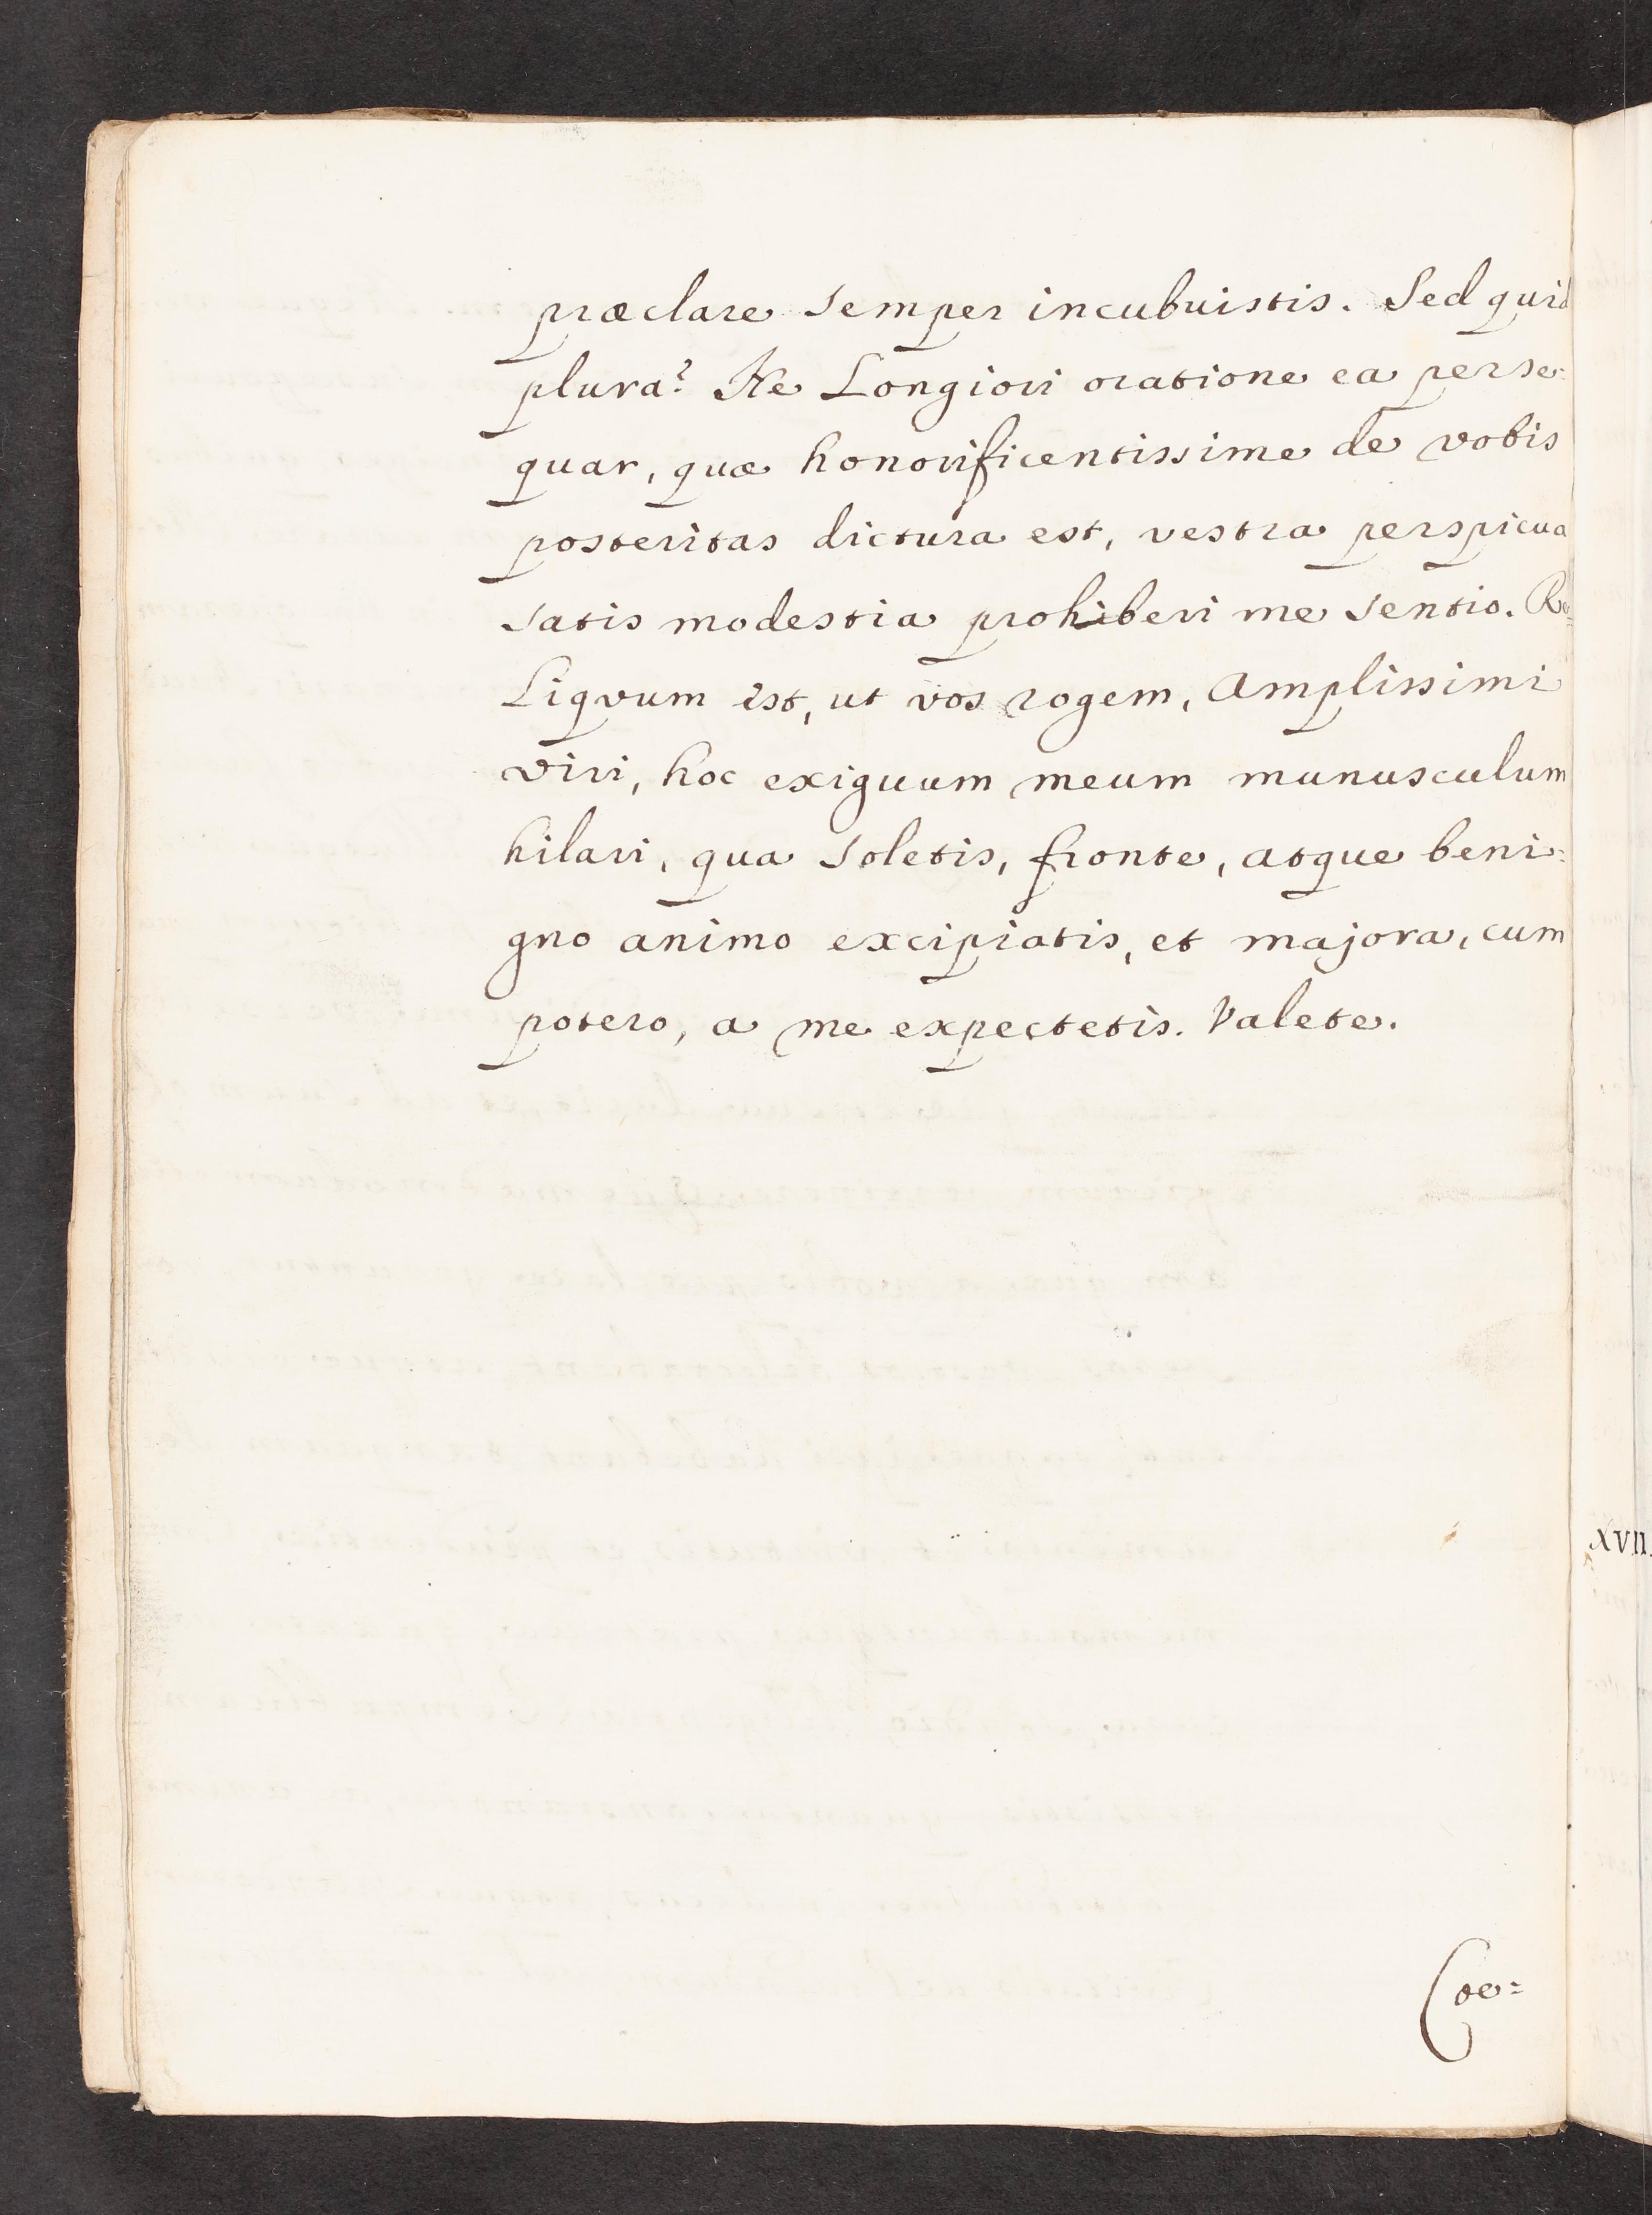 præclare semper incubuistis. Sed quid
plura? Ne Longiori oratione ea perse=
quar, quæ honorificentissime de vobis
posteritas dictura est, vestra perspicua
satis modestia prohiberi me sentio. Re=
Liqvum est, ut vos rogem, Amplissimi
viri, hoc exiguum meum munusculum
hilari, qua soletis, fronte, atque beni=
gno animo excipiatis, et majora, cum
potero, a me expectetis. Valete.
Coe=
XVII.